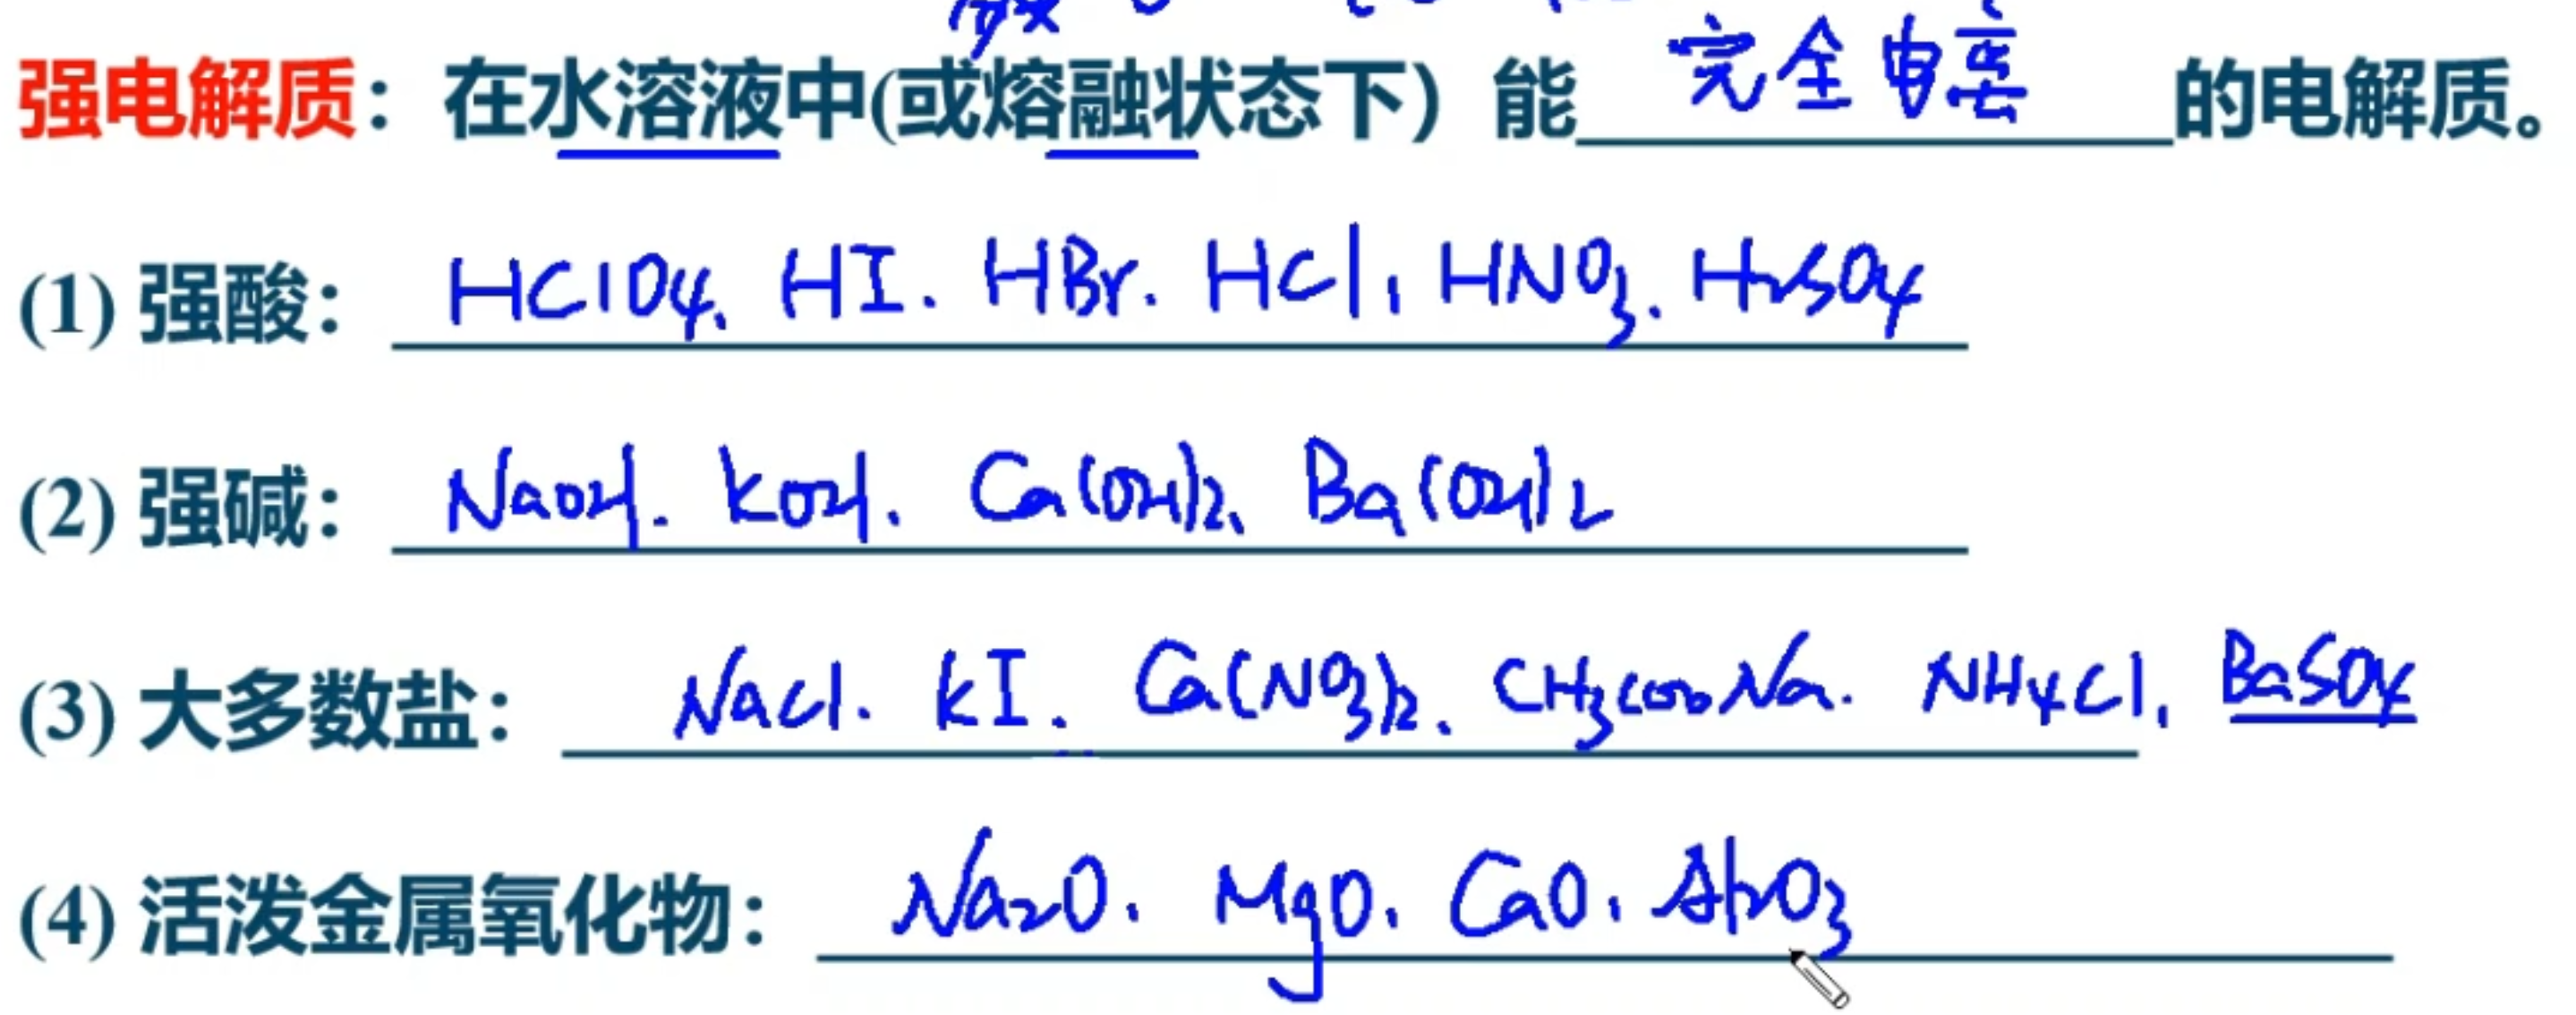 强电解质：在水溶液中(或熔融状态下）能完全电离的电解质。
(1) 强酸：HClO4、HI. HBr. HCl, HNO3. H2SO4
(2) 强碱：NaOH. KOH. Ca(OH)2、Ba(OH)2
(3) 大多数盐：NaCl. KI. Ca(NO3)2. CH3COONa. NH4Cl, BaSO4
(4) 活泼金属氧化物：Na2O. MgO. CaO. Al2O3